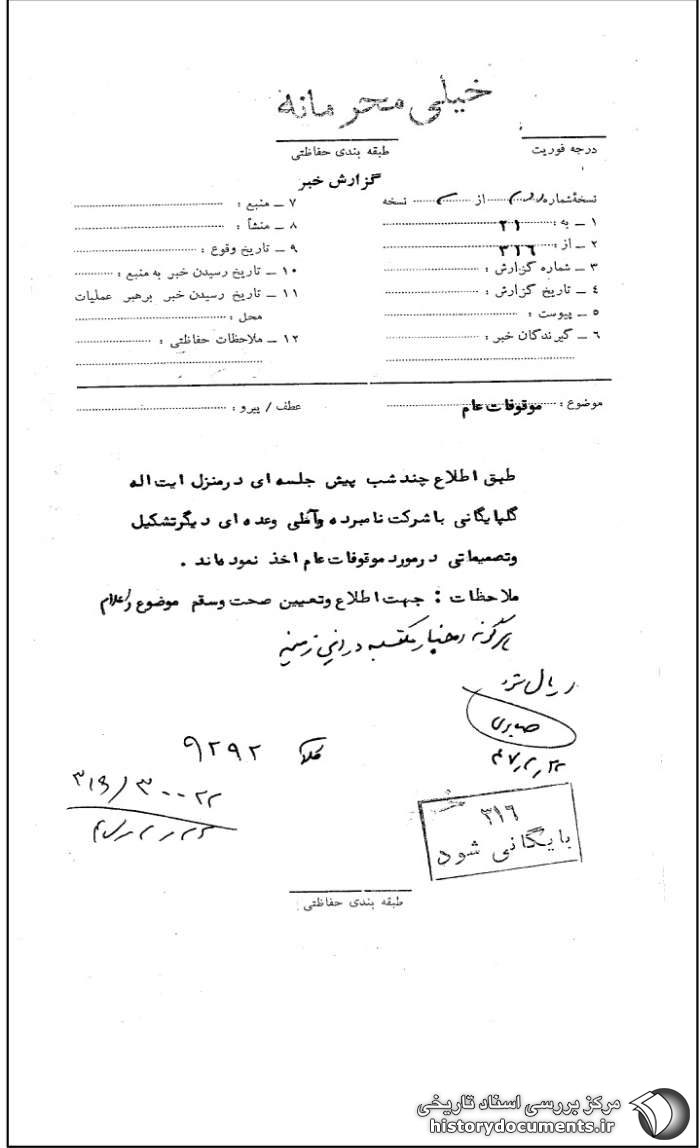 خیلی محرمانه
درجه فوریت
طبقه بندی حفاظتی
گزارش خبر
نسخهٔ شماره از نسخه
۱ ـ به : ۲۱
۲ ـ از : ۳۱۶
۳ ـ شماره گزارش :
۴ ـ تاریخ گزارش :
۵ ـ پیوست :
۶ ـ گیرندگان خبر :
۷ ـ منبع :
۸ ـ منشأ :
۹ ـ تاریخ وقوع :
۱۰ ـ تاریخ رسیدن خبر به منبع :
۱۱ ـ تاریخ رسیدن خبر برهبر عملیات
محل :
۱۲ ـ ملاحظات حفاظتی :
موضوع : موقوفات عام
عطف / پیرو :
طبق اطلاع چند شب پیش جلسه ای در منزل ایت اله
گلپایگانی با شرکت نامبرده وآملی وعده ای دیگر تشکیل
وتصمیماتی در مورد موقوفات عام اخذ نموده‌اند .
ملاحظات : جهت اطلاع وتعیین صحت وسقم موضوع واعلام
هرگونه اخبار مکتسبه در این زمینه
ارسال شود
صبری
۹۲۹۲
۳۱۶/۳۰۰۲۲
۳۱۶
بایگانی شود
طبقه بندی حفاظتی :
مرکز بررسی اسناد تاریخی
historydocuments.ir